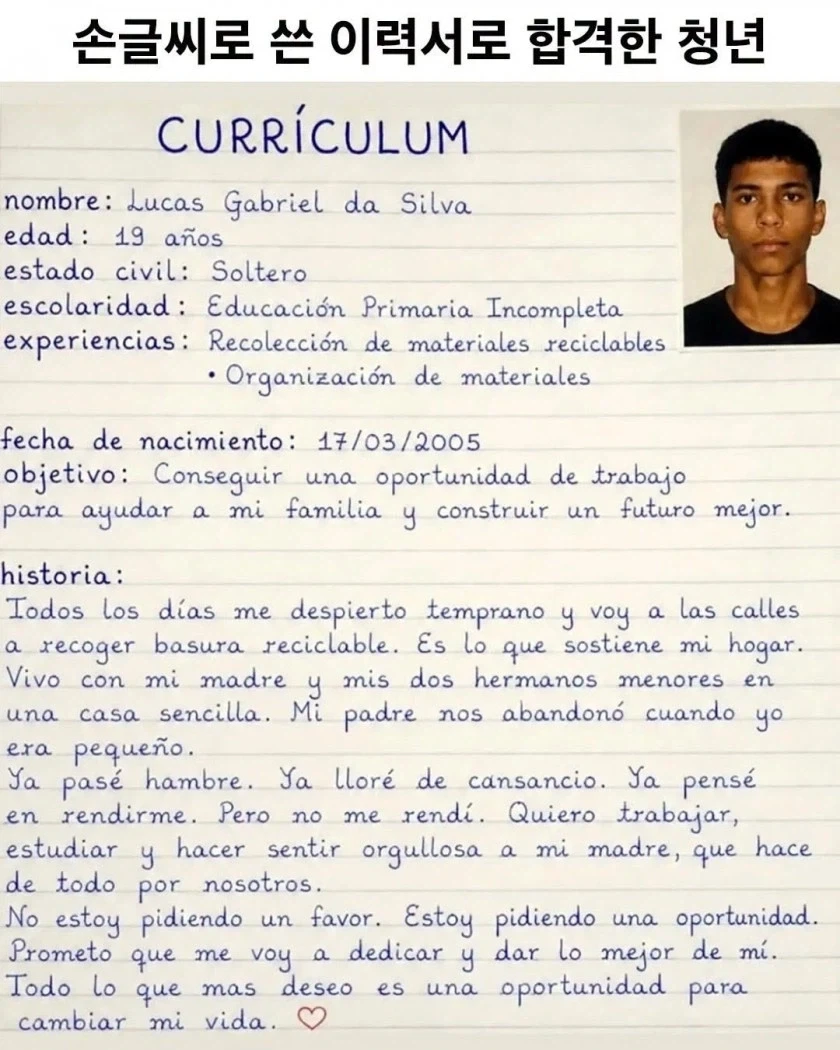 손글씨로 쓴 이력서로 합격한 청년
CURRÍCULUM
nombre: Lucas Gabriel da Silva
edad: 19 años
estado civil: Soltero
escolaridad: Educación Primaria Incompleta
experiencias: Recolección de materiales reciclables
• Organización de materiales
fecha de nacimiento: 17/03/2005
objetivo: Conseguir una oportunidad de trabajo
para ayudar a mi familia y construir un futuro mejor.
historia:
Todos los días me despierto temprano y voy a las calles
a recoger basura reciclable. Es lo que sostiene mi hogar.
Vivo con mi madre y mis dos hermanos menores en
una casa sencilla. Mi padre nos abandonó cuando yo
era pequeño.
Ya pasé hambre. Ya lloré de cansancio. Ya pensé
en rendirme. Pero no me rendí. Quiero trabajar,
estudiar y hacer sentir orgullosa a mi madre, que hace
de todo por nosotros.
No estoy pidiendo un favor. Estoy pidiendo una oportunidad.
Prometo que me voy a dedicar y dar lo mejor de mí.
Todo lo que mas deseo es una oportunidad para
cambiar mi vida. ♡